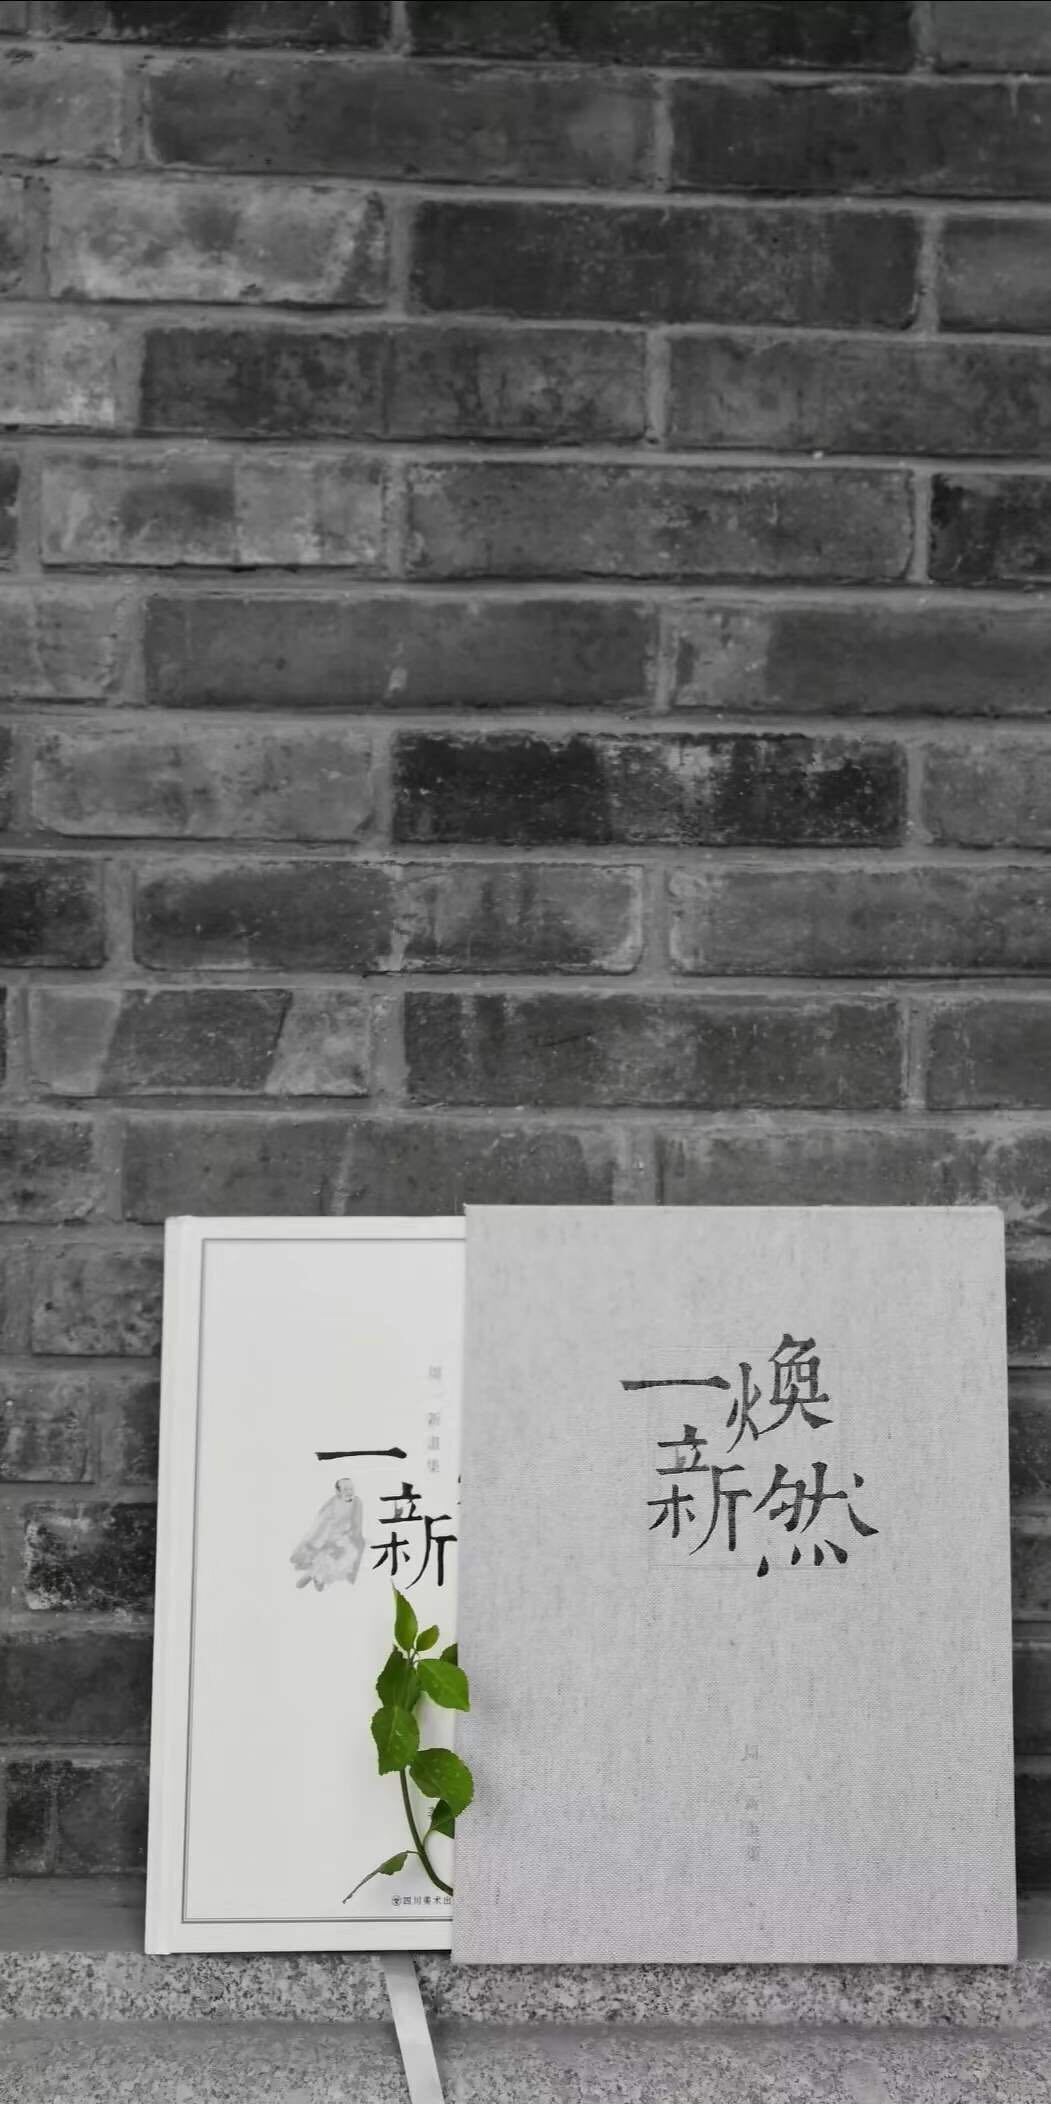 周一新畫集
一新
四川美术出
煥然
一新
周一新畫集